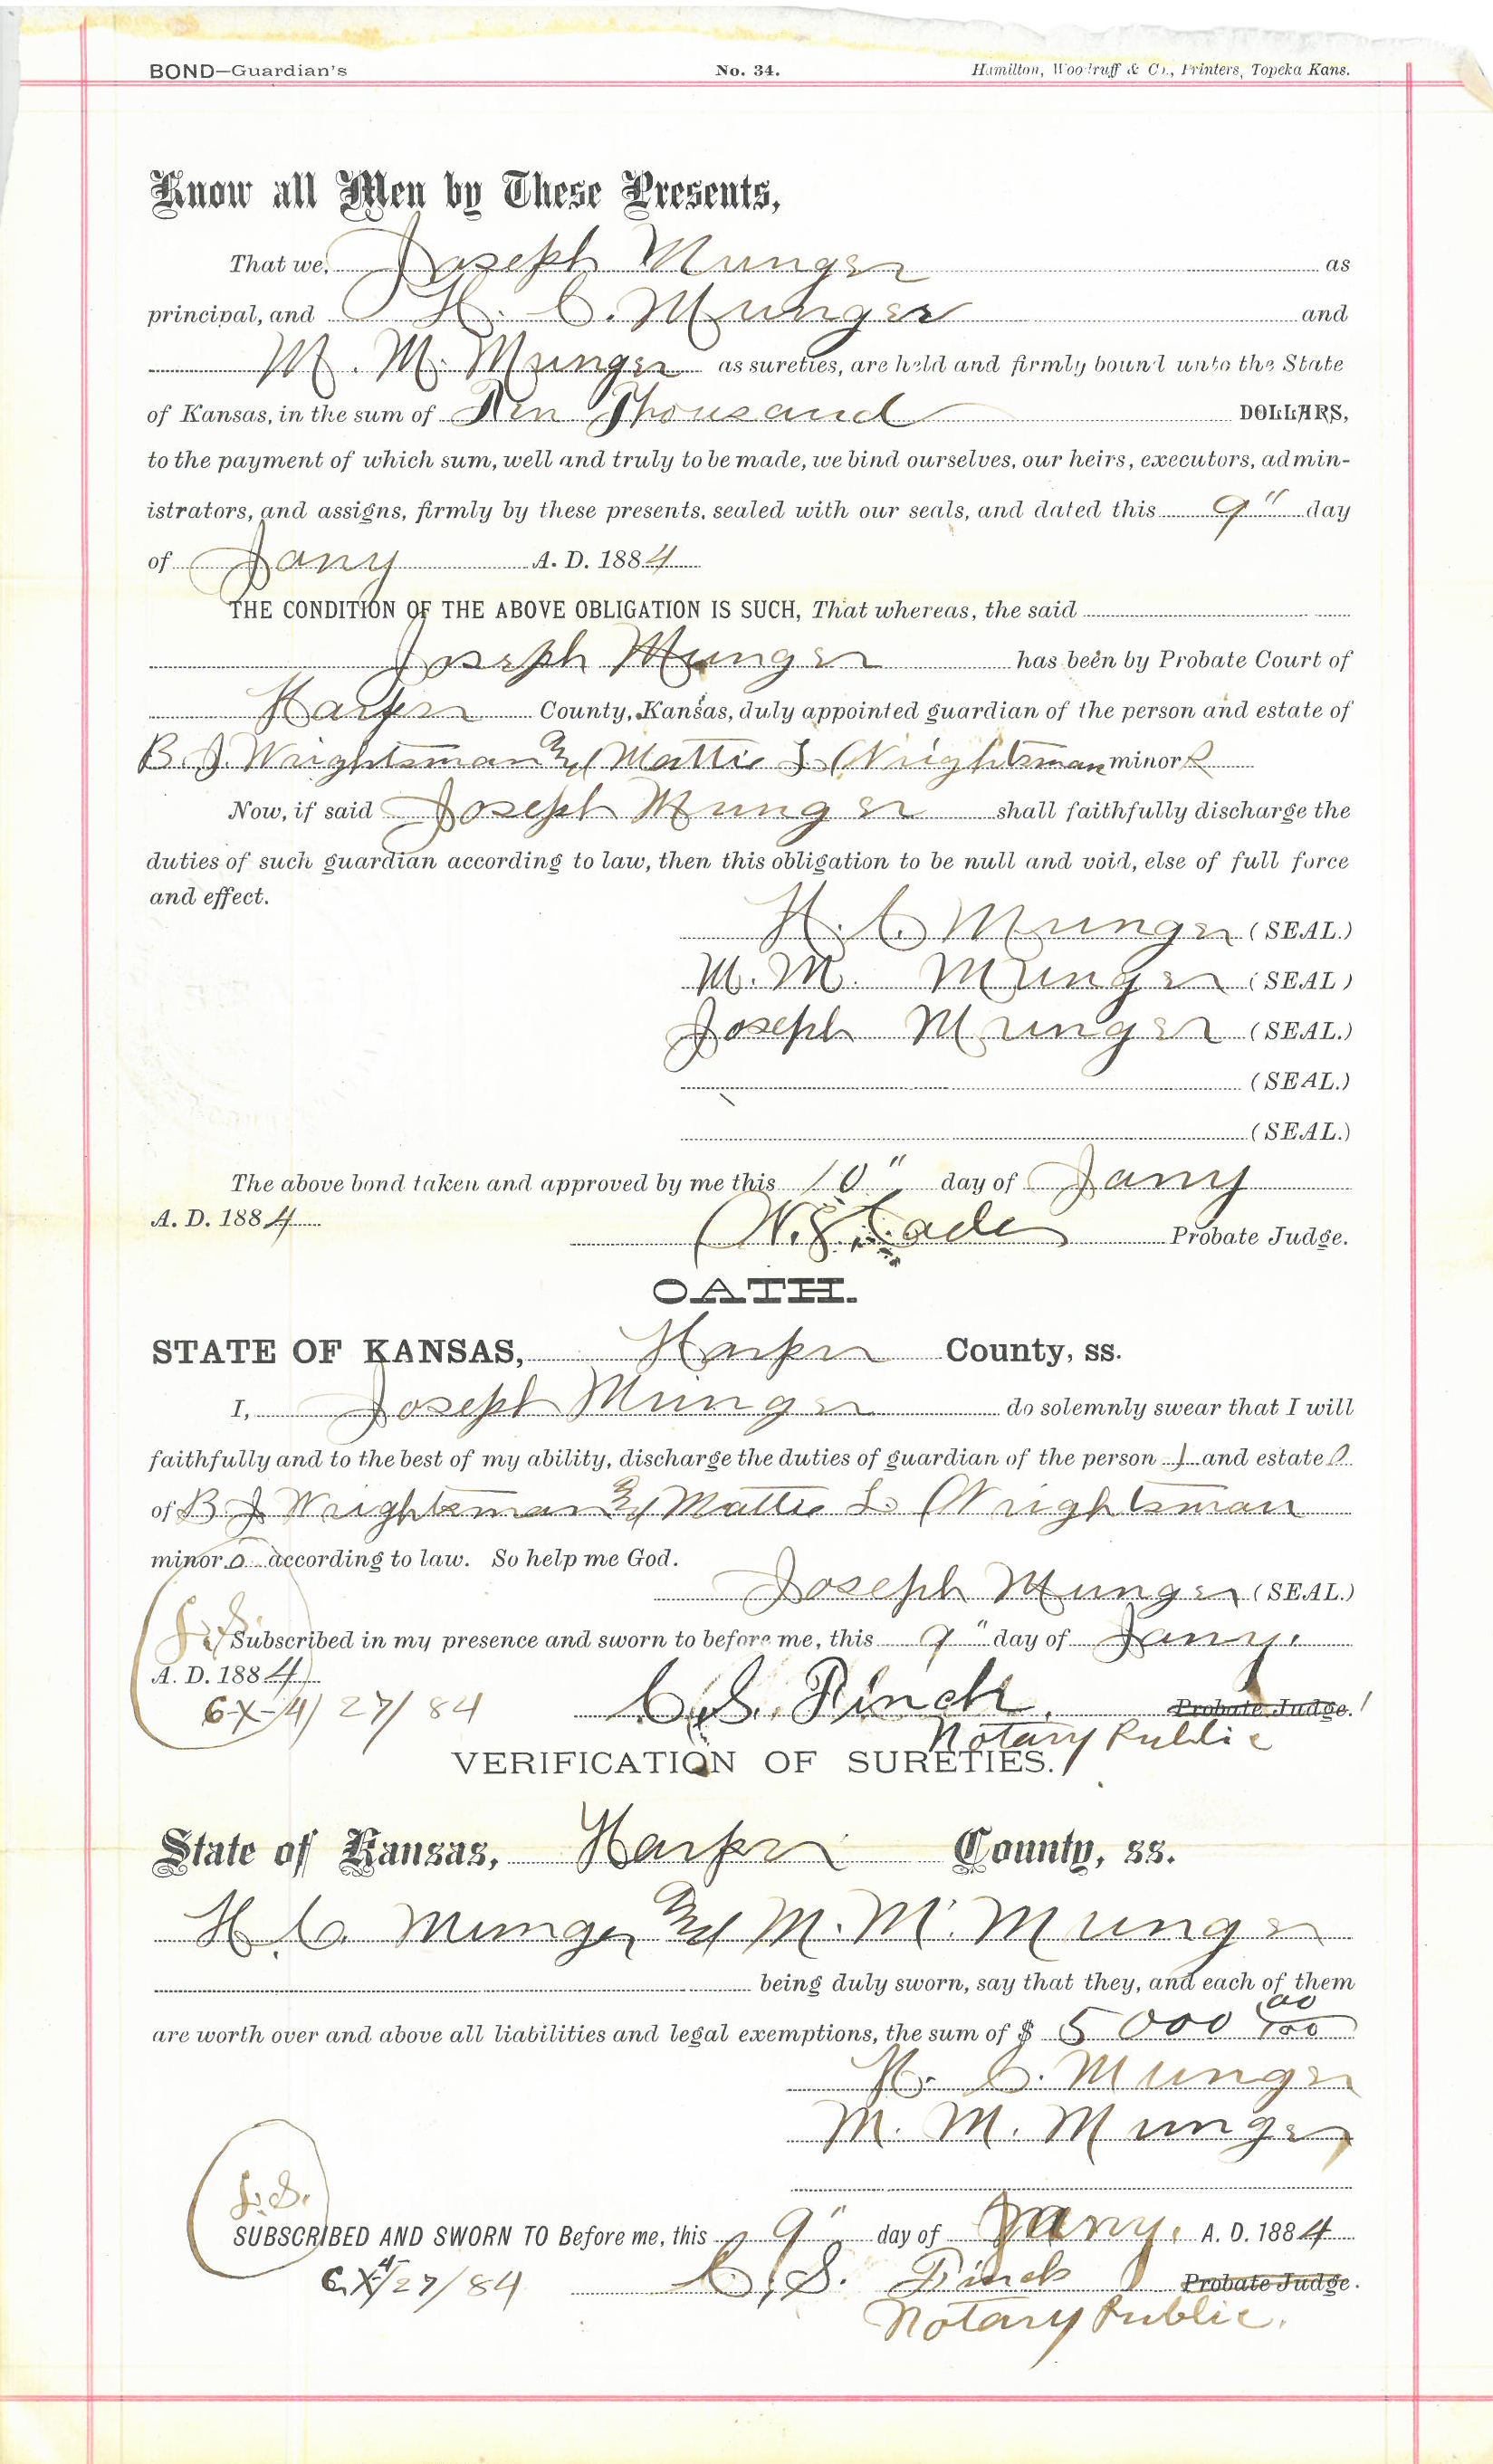 BOND—Guardian's No. 34. Hamilton, Woodruff & Co., Printers, Topeka Kans.
Know all Men by These Presents,
That we, Joseph Munger as
principal, and H. C. Munger and
M. M. Munger as sureties, are held and firmly bound unto the State
of Kansas, in the sum of Ten Thousand DOLLARS,
to the payment of which sum, well and truly to be made, we bind ourselves, our heirs, executors, admin-
istrators, and assigns, firmly by these presents, sealed with our seals, and dated this 9" day
of Jany A. D. 1884
THE CONDITION OF THE ABOVE OBLIGATION IS SUCH, That whereas, the said
Joseph Munger has been by Probate Court of
Harper County, Kansas, duly appointed guardian of the person and estate of
B. J. Wrightsman and Mattie L. Wrightsman minors
Now, if said Joseph Munger shall faithfully discharge the
duties of such guardian according to law, then this obligation to be null and void, else of full force
and effect.
H. C. Munger (SEAL.)
M. M. Munger (SEAL)
Joseph Munger (SEAL.)
(SEAL.)
(SEAL.)
The above bond taken and approved by me this 10" day of Jany
A. D. 1884 Probate Judge.
OATH.
STATE OF KANSAS, Harper County, ss.
I, Joseph Munger do solemnly swear that I will
faithfully and to the best of my ability, discharge the duties of guardian of the person s and estate s
of B J Wrightsman and Mattie L. Wrightsman
minor s according to law. So help me God.
Joseph Munger (SEAL.)
L.S.
Subscribed in my presence and sworn to before me, this 9" day of Jany.
A. D. 1884
C. S. Finch. Probate Judge.
Ex 4/27/84
Notary Public
VERIFICATION OF SURETIES.
State of Kansas, Harper County, ss.
H. C. Munger and M. M. Munger
being duly sworn, say that they, and each of them
are worth over and above all liabilities and legal exemptions, the sum of $ 5000 00/100
H. C. Munger
M. M. Munger
L.S.
SUBSCRIBED AND SWORN TO Before me, this 9" day of Jany. A. D. 1884
Ex 4/27/84 C. S. Finch Probate Judge.
Notary Public.